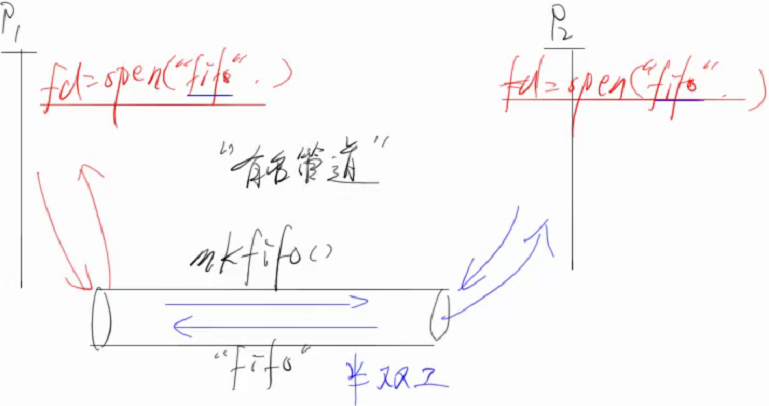 P1
P2
fd=open("fifo".)
fd=open("fifo".)
"有名管道"
mkfifo()
"fifo"
半双工